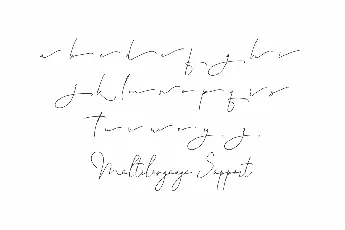 a b c d e f g h i
j k l m n o p q r s
t u v w x y z
Multilanguage Support